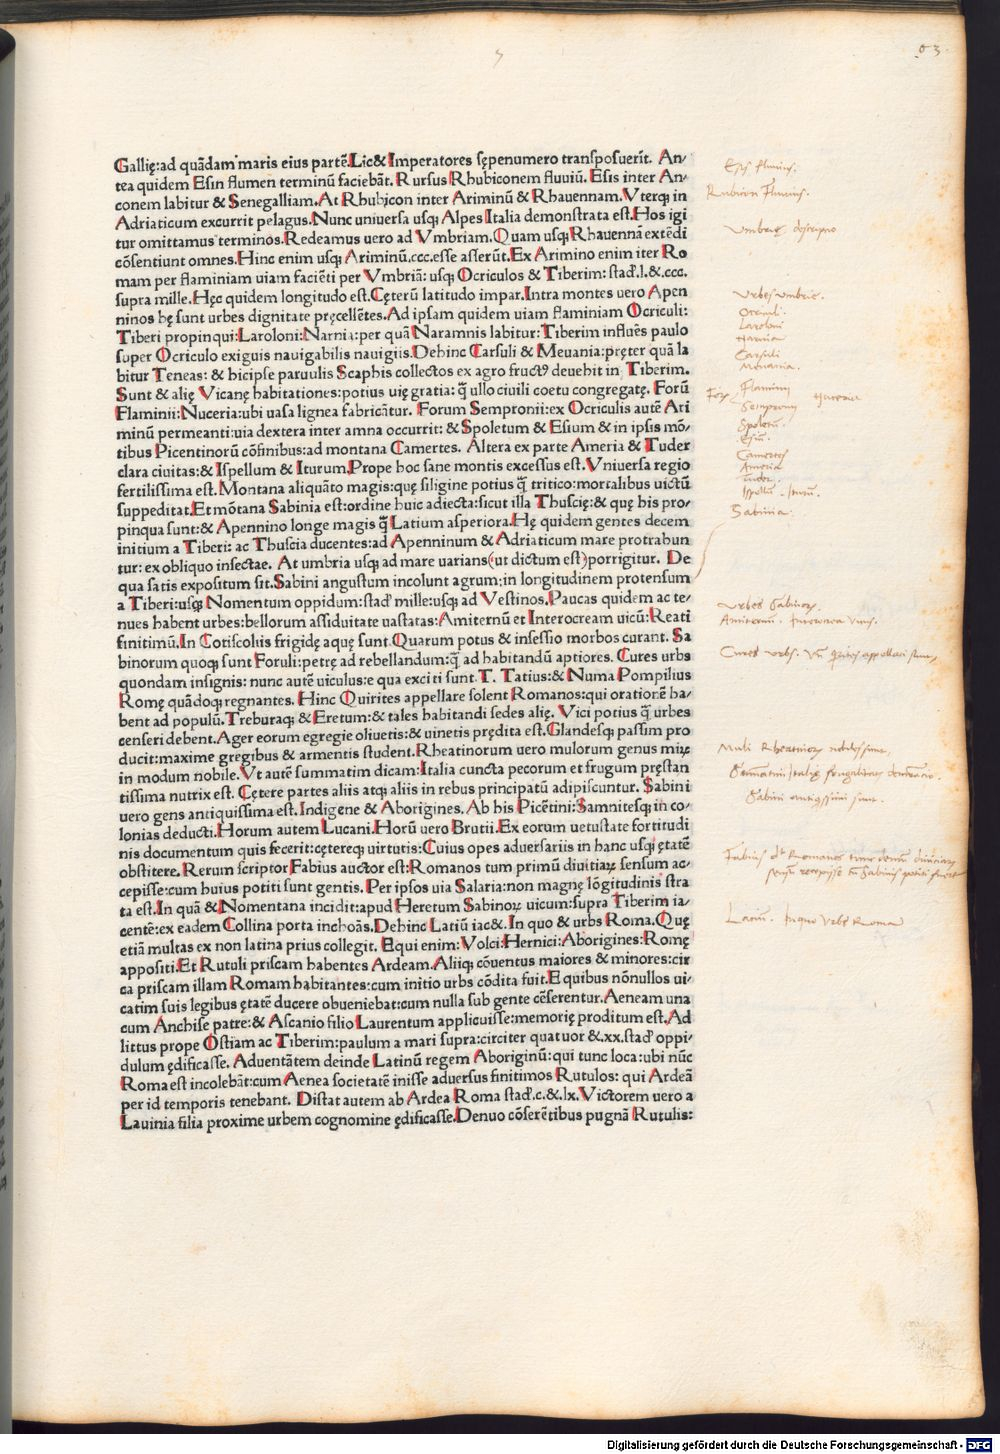 63
Gallię:ad quãdam maris eius partẽ.Lic& Imperatores sępenumero transposuerĩt. An/
tea quidem Esin flumen terminũ faciebãt. Rursus Rhubiconem fluviũ. Esis inter An/
conem labitur & Senegalliam.At Rhubicon inter Ariminũ & Rhauennam.Vterqꝫ in
Adriaticum excurrit pelagus.Nunc uniuersa usqꝫ Alpes Italia demonstrata est.Hos igi
tur omittamus terminos.Redeamus uero ad Vmbriam.Quam usqꝫ Rhauennã extẽdi
cõsentiunt omnes.Hinc enim usqꝫ Ariminũ.ccc.esse asserũt.Ex Arimino enim iter Ro
mam per flaminiam uiam faciẽti per Vmbriã: usqꝫ Ocriculos & Tiberim: stad̛.l.&.ccc.
supra mille.Hęc quidem longitudo est.Cęterũ latitudo impar.Intra montes uero Apen
ninos hę sunt urbes dignitate pręcellẽtes.Ad ipsam quidem uiam flaminiam Ocriculi:
Tiberi propinqui:Laroloni:Narnia:per quã Naramnis labitur:Tiberim influẽs paulo
super Ocriculo exiguis nauigabilis nauigiis.Dehinc Carsuli & Meuania:pręter quã la
bitur Teneas: & hicipse paruulis Scaphis collectos ex agro fructꝰ deuehit in Tiberim.
Sunt & alię Vicanę habitationes:potius uię gratia:q̃ ullo ciuili coetu congregatę. Forũ
Flaminii:Nuceria:ubi uasa lignea fabricãtur. Forum Sempronii:ex Ocriculis autẽ Ari
minũ permeanti:uia dextera inter amna occurrit: & Spoletum & Esium & in ipsis mõ/
tibus Picentinorũ cõfinibus:ad montana Camertes. Altera ex parte Ameria & Tuder
clara ciuitas:& Ispellum & Iturum.Prope hoc sane montis excessus est.Vniuersa regio
fertilissima est.Montana aliquãto magis:quę siligine potius q̃ tritico:mortalibus uictũ
suppeditat.Et mõtana Sabinia est:ordine huic adiecta:sicut illa Thuscię:& quę his pro/
pinqua sunt:& Apennino longe magis q̃ Latium asperiora.Hę quidem gentes decem
initium a Tiberi: ac Thuscia ducentes:ad Apenninum & Adriaticum mare protrahun
tur: ex obliquo insectae. At umbria usqꝫ ad mare uarians(ut dictum est)porrigitur. De
qua satis expositum sit.Sabini angustum incolunt agrum:in longitudinem protensum
a Tiberi:usqꝫ Nomentum oppidum:stad̛ mille:usqꝫ ad Vestinos.Paucas quidem ac te/
nues habent urbes:bellorum assiduitate uastatas:Amiternũ et Interocream uicũ:Reati
finitimũ.In Cotiscoliis frigidę aquę sunt.Quarum potus & insessio morbos curant. Sa
binorum quoqꝫ sunt Foruli:petrę ad rebellandum:q̃ ad habitandũ aptiores. Cures urbs
quondam insignis: nunc autẽ uiculus:e qua exciti sunt T. Tatius:& Numa Pompilius
Romę quãdoqꝫ regnantes. Hinc Quirites appellare solent Romanos:qui orationẽ ha/
bent ad populũ.Treburaqꝫ & Eretum:& tales habitandi sedes alię. Vici potius q̃ urbes
censeri debent.Ager eorum egregie oliuetis:& uinetis prędita est.Glandesqꝫ passim pro
ducit:maxime gregibus & armentis student.Rheatinorum uero mulorum genus miꝝ
in modum nobile.Vt autẽ summatim dicam:Italia cuncta pecorum et frugum pręstan
tissima nutrix est. Cętere partes aliis atqꝫ aliis in rebus principatũ adipiscuntur. Sabini
uero gens antiquissima est.Indigene & Aborigines. Ab his Picẽtini:Samnitesqꝫ in co/
lonias deducti.Horum autem Lucani.Horũ uero Brutii.Ex eorum uetustate fortitudi
nis documentum quis fecerit:cętereqꝫ uirtutis:Cuius opes aduersariis in hanc usqꝫ ętatẽ
obstitere.Rerum scriptor Fabius auctor est:Romanos tum primũ diuitiaꝝ sensum ac/
cepisse:cum huius potiti sunt gentis. Per ipsos uia Salaria:non magnę lõgitudinis stra
ta est.In quã & Nomentana incidit:apud Heretum Sabinoꝝ uicum:supra Tiberim ia/
centẽ:ex eadem Collina porta inchoãs.Dehinc Latiũ iac&.In quo & urbs Roma.Quę
etiã multas ex non latina prius collegit. Equi enim:Volci:Hernici:Aborigines:Romę
appositi.Et Rutuli priscam habentes Ardeam.Aliiqꝫ cõuentus maiores & minores:cir
ca priscam illam Romam habitantes:cum initio urbs cõdita fuit.E quibus nõnullos ui/
catim suis legibus ętatẽ ducere obueniebat:cum nulla sub gente cẽserentur.Aeneam una
cum Anchise patre:& Ascanio filio Laurentum applicuisse:memorię proditum est.Ad
littus prope Ostiam ac Tiberim:paulum a mari supra:circiter quatuor &.xx.stad̛ oppi/
dulum ędificasse. Aduentãtem deinde Latinũ regem Aboriginũ:qui tunc loca:ubi nũc
Roma est incolebãt:cum Aenea societatẽ inisse aduersus finitimos Rutulos: qui Ardeã
per id temporis tenebant. Distat autem ab Ardea Roma stad̛.c.&.lx.Victorem uero a
Lauinia filia proxime urbem cognomine ędificasse.Denuo cõserẽtibus pugnã Rutulis:
Esis fluuius.
Rubicon Fluuius.
Vmbrię descriptio
Vrbes Vmbrie.
Ocriculi.
Laroloni
Narnia
Carsuli
Meuania.
Flaminij
Sempronij
Nuceria
Spoletũ.
Esiũ.
Camertes
Ameria
Tuder.
Ispellũ. Iturũ.
Sabinia.
Vrbes Sabinoꝝ.
Amiternũ. Interocrea Vicus.
Cures urbs. Vñ Quirites appellati sunt
Muli Rheatinoꝝ nobilissimi.
Sabini antiquissimi sunt.
Latiũ. In quo Vrbs Roma
Digitalisierung gefördert durch die Deutsche Forschungsgemeinschaft - DFG